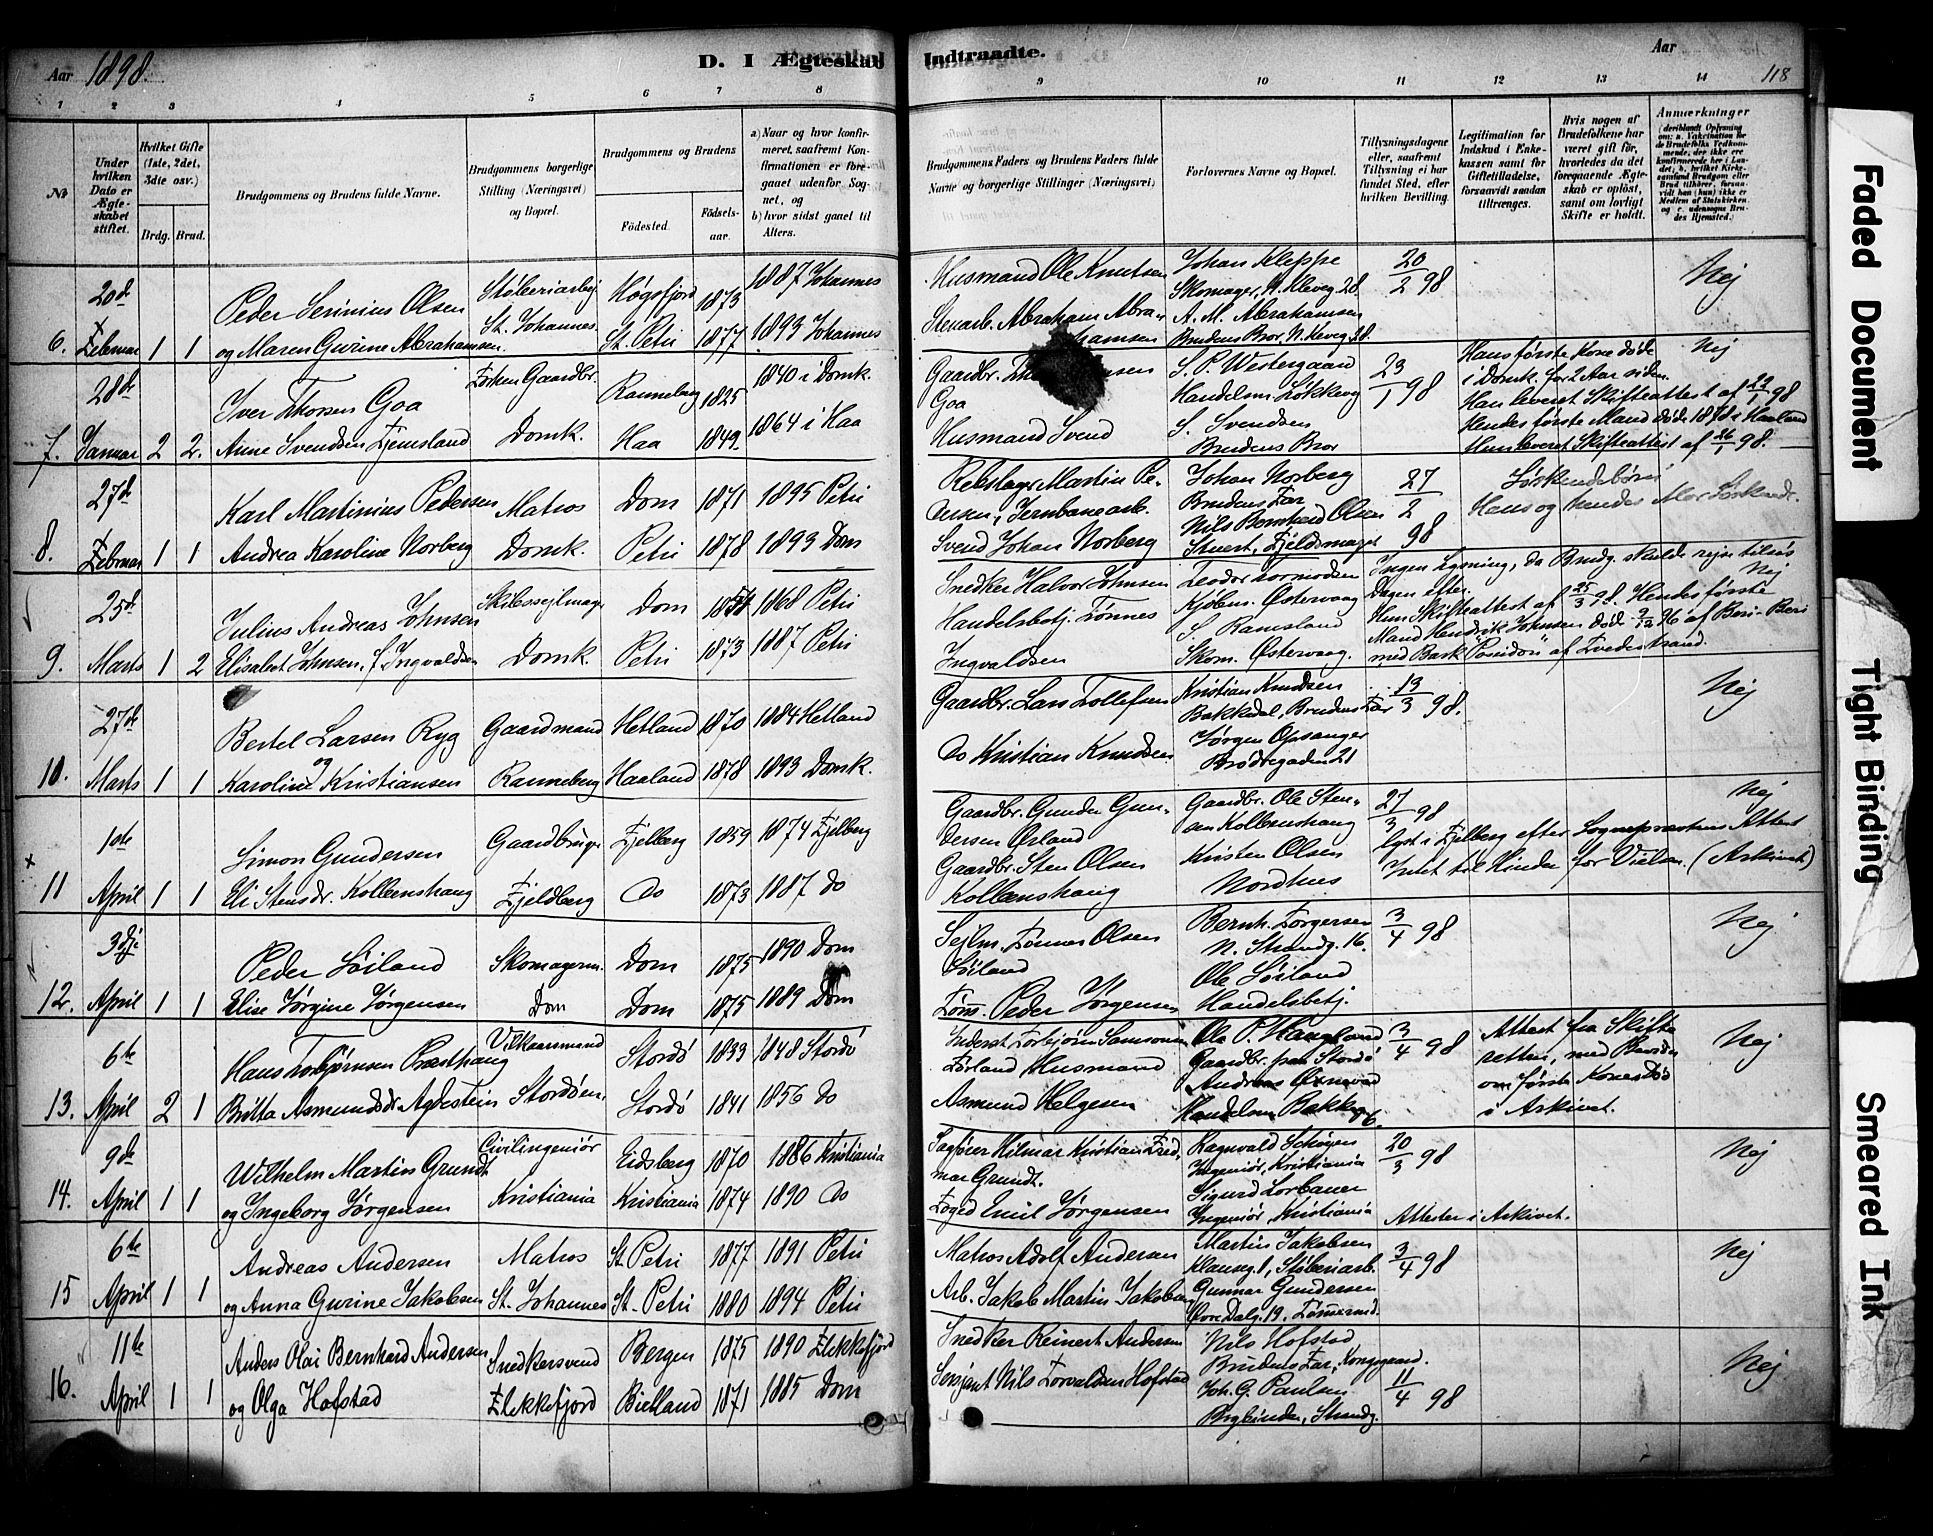 Aar 1898.
D. I Ægteskab
Indtraadte.
Aar
118
1 2 3 4 5 6 7 8
9 10 11 12 13 14
No
Under hvilken Dato er Ægteskabet stiftet.
Hvilket Gifte (1ste, 2det, 3die osv.)
Brdg. Brud.
Brudgommens og Brudens fulde Navne.
Brudgommens borgerlige Stilling (Næringsvei) og Bopæl.
Brudgommens og Brudens
Födested.
Födselsaar.
a) Naar og hvor konfirmeret, saafremt Konfirmationen er foregaaet udenfor Sognet, og
b) hvor sidst gaaet til Alters.
Brudgommens Faders og Brudens Faders fulde Navne og borgerlige Stillinger (Næringsvei)
Forlovernes Navne og Bopæl.
Tillysningsdagene eller, saafremt Tillysning ei har fundet Sted, efter hvilken Bevilling.
Legitimation for Indskud i Enkekassen samt for Giftetilladelse, forsaavidt saadan tiltrænges.
Hvis nogen af Brudefolkene har været gift før, hvorledes da det foregaaende Ægteskab er oplöst, samt om lovligt Skifte er holdt.
Anmærkninger
6. 20de Februar 1 1
Peder Serinius Olsen
og Maren Gurine Abrahamsen.
Støberiarbej
St. Johannes
Høgsfjord 1873 1887 Johannes
St. Petri 1877 1893 Johannes
Husmand Ole Knutsen
Stenarb. Abraham Abra-
hamsen
Johan Kleppe
Skomager, N. Kleveg. 28.
A. M. Abrahamsen
Brudens Bror N. Kleveg. 28.
20/2 98
Nej
7. 28de Januar 2 2.
Iver Thorsen Goa
Anne Svendsen Fjemsland
Forhen Gaardbr.
Domk.
Ranneberg 1825 1840 i Domk.
Haa 1849 1864 i Haa
Gaardbr.
Goa
Husmand Svend
S. P. Westergaard
Handelsm. Løkkeveg
S. Svendsen
Brudens Bror
23/1 98
Hans første Kone døde
i Domk. for 2 Aar siden.
Han leveret Skifteattest af 22/1 98
Hendes første Mand døde 1878 i Haaland
Hun leveret Skifteattest af 26/1 98.
Nej
8. 27de Februar 1 1
Karl Martinius Pedersen
Andrea Karoline Norberg
Matros
Domk.
Dom 1871 1895 Petri
Petri 1878 1893 Dom
Rebslager Martin Pe-
dersen, Jernbanearb.
Svend Johan Norberg
Johan Norberg
Brudens Far
Nils Bernhard Olsen
Stuert, Fjeldsmaget
27/2 98
Søskendebørn
Hans og hendes Mor Søskende.
9. 25de Marts 1 2
Julius Andreas Johnsen
Elisabet Johnsen, f. Ingvaldsen
Skibssejlmager
Domk.
Dom 1854 1868 Petri
Petri 1873 1887 Petri
Snedker Halvor Johnsen
Handelsbetj. Tønnes
Ingvaldsen
Teodor Tormodsen
Kjøbm. Østervaag
S. Ramsland
Skom. Østervaag.
Ingen Lysning, da Brudg. skulde rejse tilsøs
Dagen efter.
Hun Skifteattest af 25/3 98. Hendes første
Mand Hendrik Johnsen døde 9/12 96 af Beri-Beri
med Bark "Poseidon" af Tvedestrand.
Nej
10. 27de Marts 1 1
Bertel Larsen Ryg
og
Karoline Kristiansen
Gaardmand
Ranneberg
Hetland 1870 1884 Hetland
Haaland 1878 1893 Domk.
Gaardbr. Lars Tollefsen
Do Kristian Knudsen
Kristian Knudsen
Bakkedal, Brudens Far
Jørgen Opsanger
Brødregaden 21
13/3 98.
Nej
11 1ste April 1 1
Simon Gundersen
Eli Stensdr. Kolbenshaug
Gaardbruger
Fjeldberg
Fjelberg 1859 1874 Fjelberg
Do 1873 1887 do
Gaardbr. Gunder Gun-
dersen Ørland
Gaardbr. Sten Olsen
Kolbenshaug
Gaardbr. Ole Sten-
sen Kolbenshaug
Kristen Olsen
Nordhus
27/3 98
lyst i Fjelberg efter Sogneprestens Attest
Intet til Hinder for Vielsen. (Arkivet)
Nej
12. 3dje April 1 1
Peder Söiland
Elise Jörgine Jörgensen
Skomagerm.
Dom
Dom 1875 1890 Dom
Dom 1875 1889 Dom
Sejlm. Tønnes Olsen
Söiland
Tøm. Peder Jörgensen
Bernh. Torgersen
N. Strandg. 16.
Ole Söiland
Handelsbetj.
3/4 98
Nej
13. 6te April 2 1
Hans Torbjørnsen Præsthaug
Britta Asmundsdr Agdestein
Vilkaarsmand
Stordöen.
Stordö 1833 1848 Stordö
Stordö 1841 1856 do
Inderst Torbjørn Samsonsen
Förland Husmand
Asmund Helgesen
Ole P. Haugland
Gaardbr. fra Stordö
Andreas Øxnevad
Handelsm. Bakkeg. 6.
3/4 98
Attest fra Skifte
retten, med Bevidn
om første Kones Død
i Arkivet.
Nej
14. 9de April 1 1
Wilhelm Martin Grundt
og Ingeborg Jørgensen
Civilingeniör
Kristiania
Eidsberg 1870 1886 Kristiania
Kristiania 1874 1890 Do
Sagfører Hilmar Kristian Fred-
mar Grundt.
Foged Emil Jørgensen
Ragnvald Schøyen
Ingeniör, Kristiania
Sigurd Lorbauer
Ingeniör, Kristiania
20/3 98
Attester i Arkivet.
Nej
15 6te April 1 1
Andreas Andersen
og Anna Gurine Jakobsen
Matros
St. Johannes
St. Petri 1877 1891 Petri
St. Petri 1880 1894 Petri
Matros Adolf Andersen
Arb. Jakob Martin Jakobsen
Martin Jakobsen
Klauseg. 1, Støberiarb.
Gunnar Gundersen
Øvre Dalg. 19. Tømmermd.
3/4 98
Nej
16. 11te April 1 1
Anders Olai Bernhard Andersen
og Olga Hofstad
Snedkersvend
Flekkefjord
Bergen 1875 1890 Flekkefjord
Bielland 1871 1885 Dom
Snedker Reinert Andersen
Sersjant Nils Torvaldsen Hofstad
Nils Hofstad
Brudens Far, Kongsgaard.
Joh. G. Paulsen
Bogbinder, Strandg.
11/4 98
Nej
Faded Document
Tight Binding
Smeared Ink